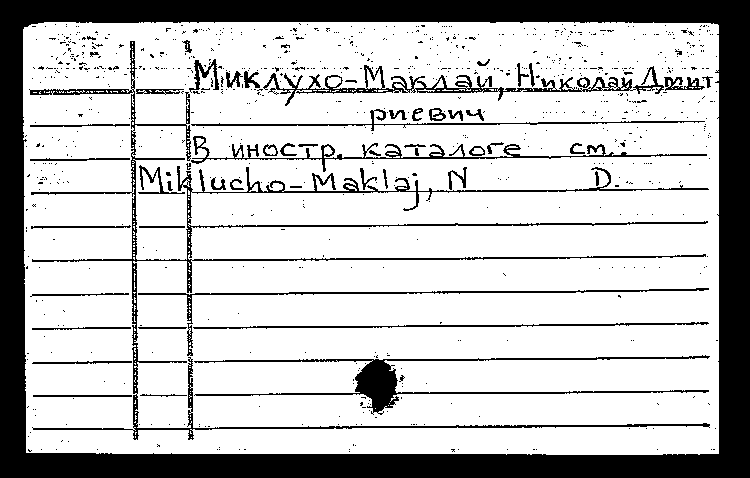 Миклухо-Маклай, Николай Дмит
риевич
В иностр. каталоге см.:
Miklucho-Maklaj, N D.